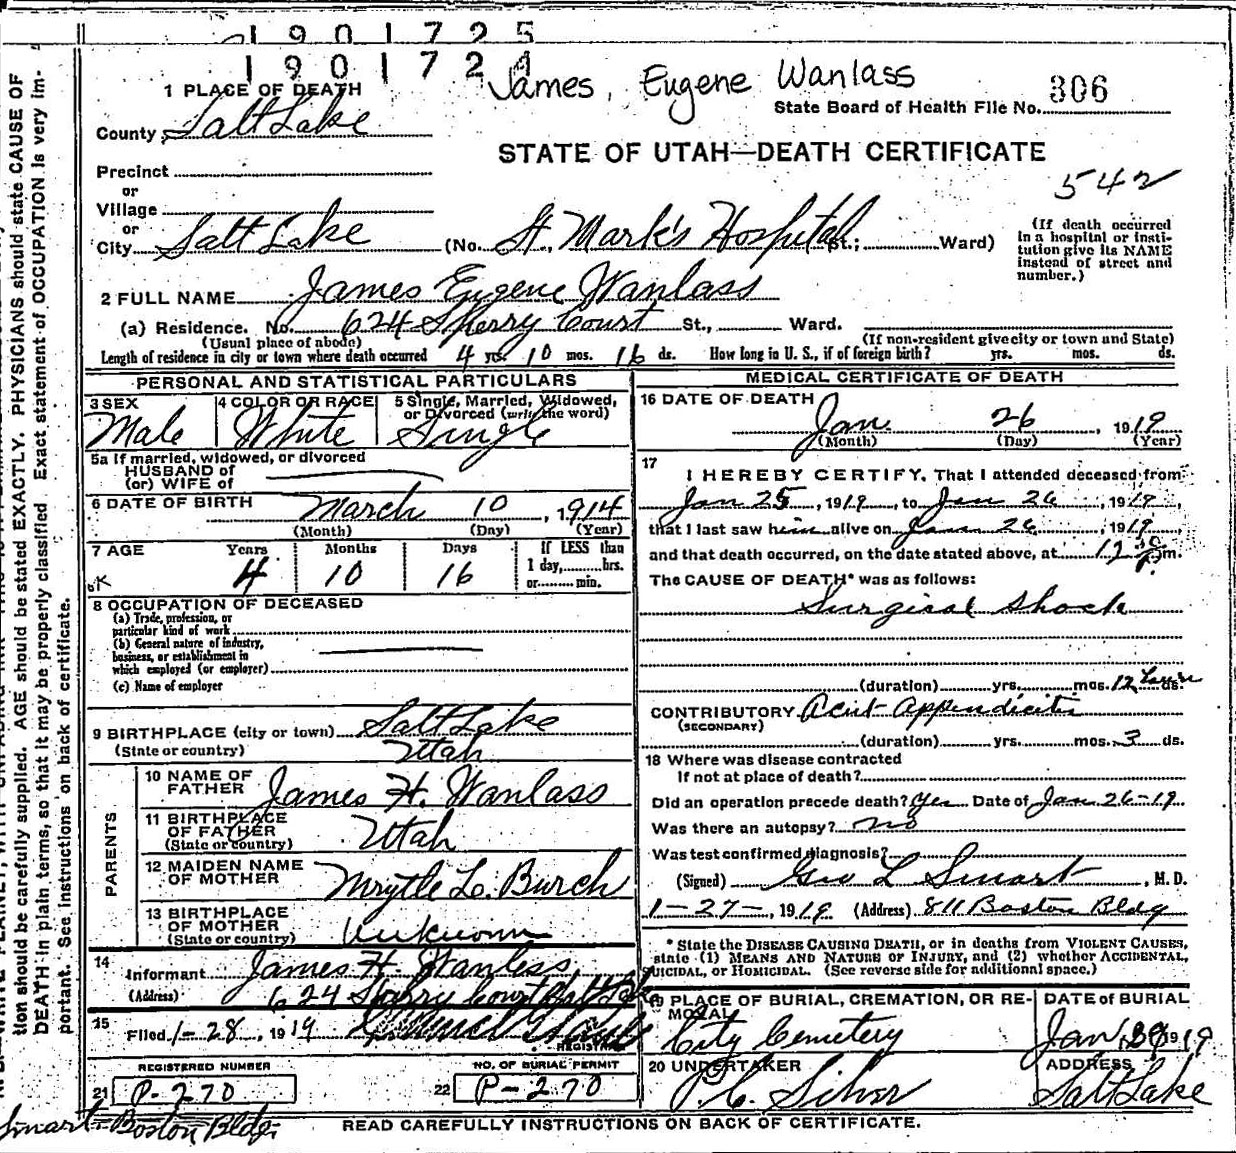 1901725
1901724
James, Eugene Wanlass
State Board of Health File No. 306
1 PLACE OF DEATH
County Salt Lake
STATE OF UTAH—DEATH CERTIFICATE
542
Precinct
or
Village
or
City Salt Lake (No. St. Mark's Hospital St.; Ward)
(If death occurred in a hospital or insti-
tution give its NAME
instead of street and
number.)
2 FULL NAME James Eugene Wanlass
(a) Residence. No. 624 Sherry Court St., Ward.
(Usual place of abode)
(If non-resident give city or town and State)
Length of residence in city or town where death occurred 4 yrs. 10 mos. 16 ds. How long in U. S., if of foreign birth? yrs. mos. ds.
PERSONAL AND STATISTICAL PARTICULARS
3 SEX
Male
4 COLOR OR RACE
White
5 Single, Married, Widowed,
or Divorced (write the word)
Single
5a If married, widowed, or divorced
HUSBAND of
(or) WIFE of
6 DATE OF BIRTH March 10, 1914
(Month) (Day) (Year)
7 AGE Years Months Days If LESS than
1 day, hrs.
or min.
OK 4 10 16
8 OCCUPATION OF DECEASED
(a) Trade, profession, or
particular kind of work
(b) General nature of industry,
business, or establishment in
which employed (or employer)
(c) Name of employer
9 BIRTHPLACE (city or town) Salt Lake
(State or country) Utah
PARENTS
10 NAME OF
FATHER James H. Wanlass
11 BIRTHPLACE
OF FATHER
(State or country) Utah
12 MAIDEN NAME
OF MOTHER Mrytle L. Burch
13 BIRTHPLACE
OF MOTHER
(State or country) Unknown
14
Informant James H. Wanless
(Address) 624 Sherry Court Salt Lake
15
Filed 1-28, 1919
REGISTRAR
REGISTERED NUMBER
21 P-270
NO. OF BURIAL PERMIT
22 P-270
MEDICAL CERTIFICATE OF DEATH
16 DATE OF DEATH
Jan 26, 1919
(Month) (Day) (Year)
17
I HEREBY CERTIFY, That I attended deceased from
Jan 25, 1919, to Jan 26, 1919,
that I last saw him alive on Jan 26, 1919
and that death occurred, on the date stated above, at 12 m.
The CAUSE OF DEATH* was as follows:
Surgical Shock
(duration) yrs. mos. 12 hours ds.
CONTRIBUTORY Acut Appendicitis
(SECONDARY)
(duration) yrs. mos. 3 ds.
18 Where was disease contracted
If not at place of death?
Did an operation precede death? Yes Date of Jan 26-19
Was there an autopsy? no
Was test confirmed diagnosis?
(Signed) Geo L Smart, M. D.
1-27-, 1919 (Address) 811 Boston Bldg
*State the DISEASE CAUSING DEATH, or in deaths from VIOLENT CAUSES,
state (1) MEANS AND NATURE OF INJURY, and (2) whether ACCIDENTAL,
SUICIDAL, or HOMICIDAL. (See reverse side for additional space.)
19 PLACE OF BURIAL, CREMATION, OR RE-
MOVAL
City Cemetery
DATE of BURIAL
Jan 1919
20 UNDERTAKER
P. C. Silver
ADDRESS
Salt Lake
Smart - Boston Bldg.
READ CAREFULLY INSTRUCTIONS ON BACK OF CERTIFICATE.
tion should be carefully supplied. AGE should be stated EXACTLY. PHYSICIANS should state CAUSE OF
DEATH in plain terms, so that it may be properly classified. Exact statement of OCCUPATION is very im-
portant. See instructions on back of certificate.